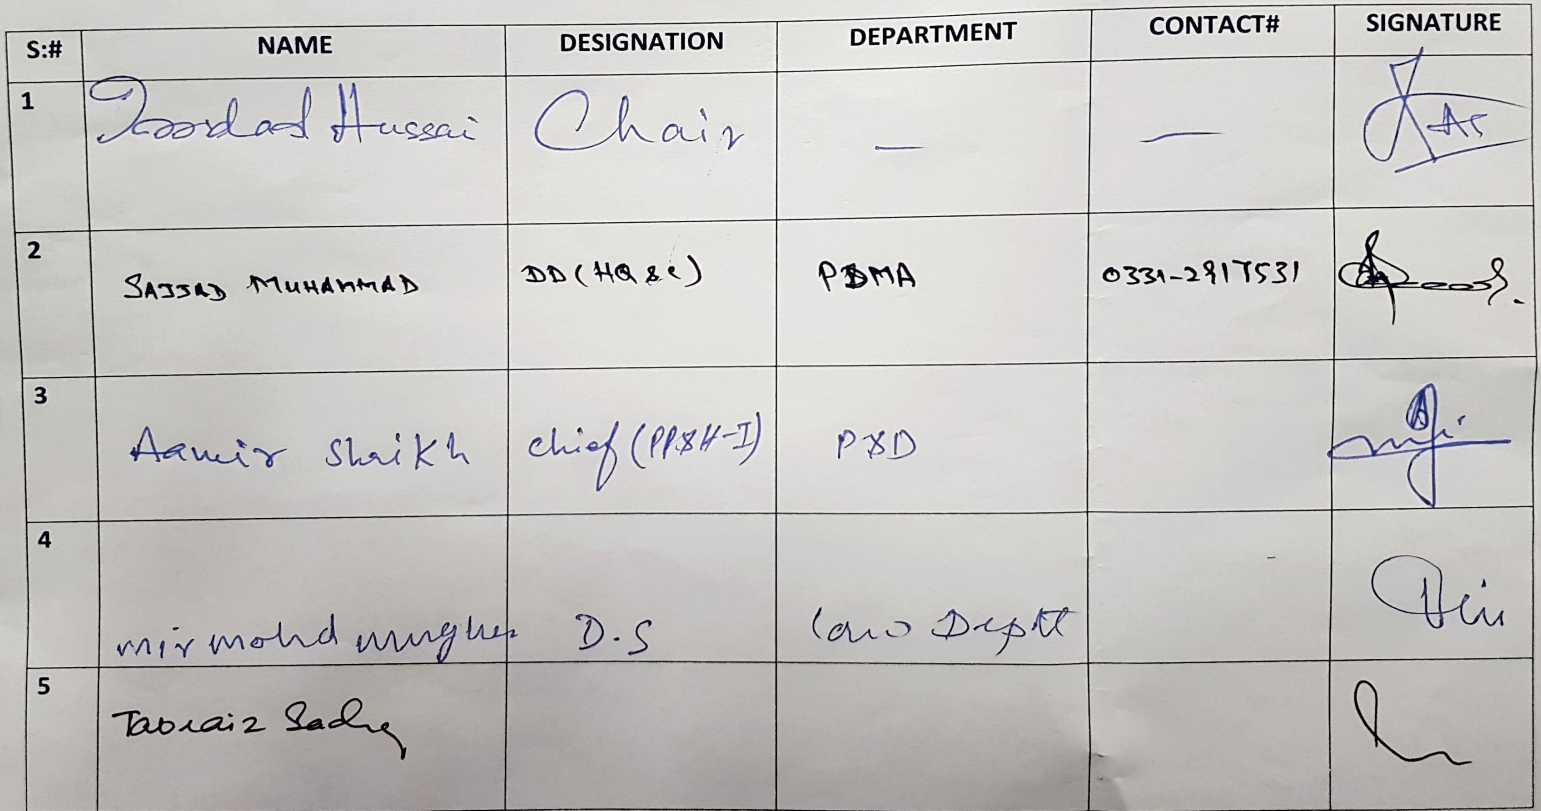 S:# NAME DESIGNATION DEPARTMENT CONTACT# SIGNATURE
1 Hussai Chair — —
2 SAJJAD MUHAMMAD DD (HQ & C) PDMA 0331-2917531
3 Aamir Shaikh Chief (PP&H-I) P&D
4 mir mohd D.S Law Deptt
5 Tabraiz Sadiq